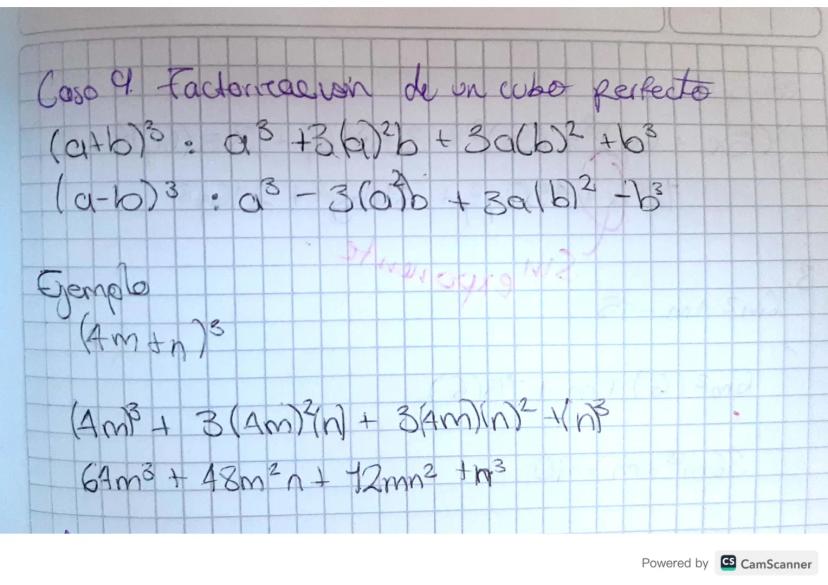 Caso 9. Factorización de un cubo perfecto
(a+b)³ : a³ +3(a)²b + 3a(b)² +b³
(a-b)³ : a³ - 3(a)²b + 3a(b)² -b³
Sin exponente
Ejemplo
(4m+n)³
(4m)³ + 3(4m)²(n) + 3(4m)(n)² +(n)³
64m³ + 48m²n + 12mn² +n³
Powered by CS CamScanner